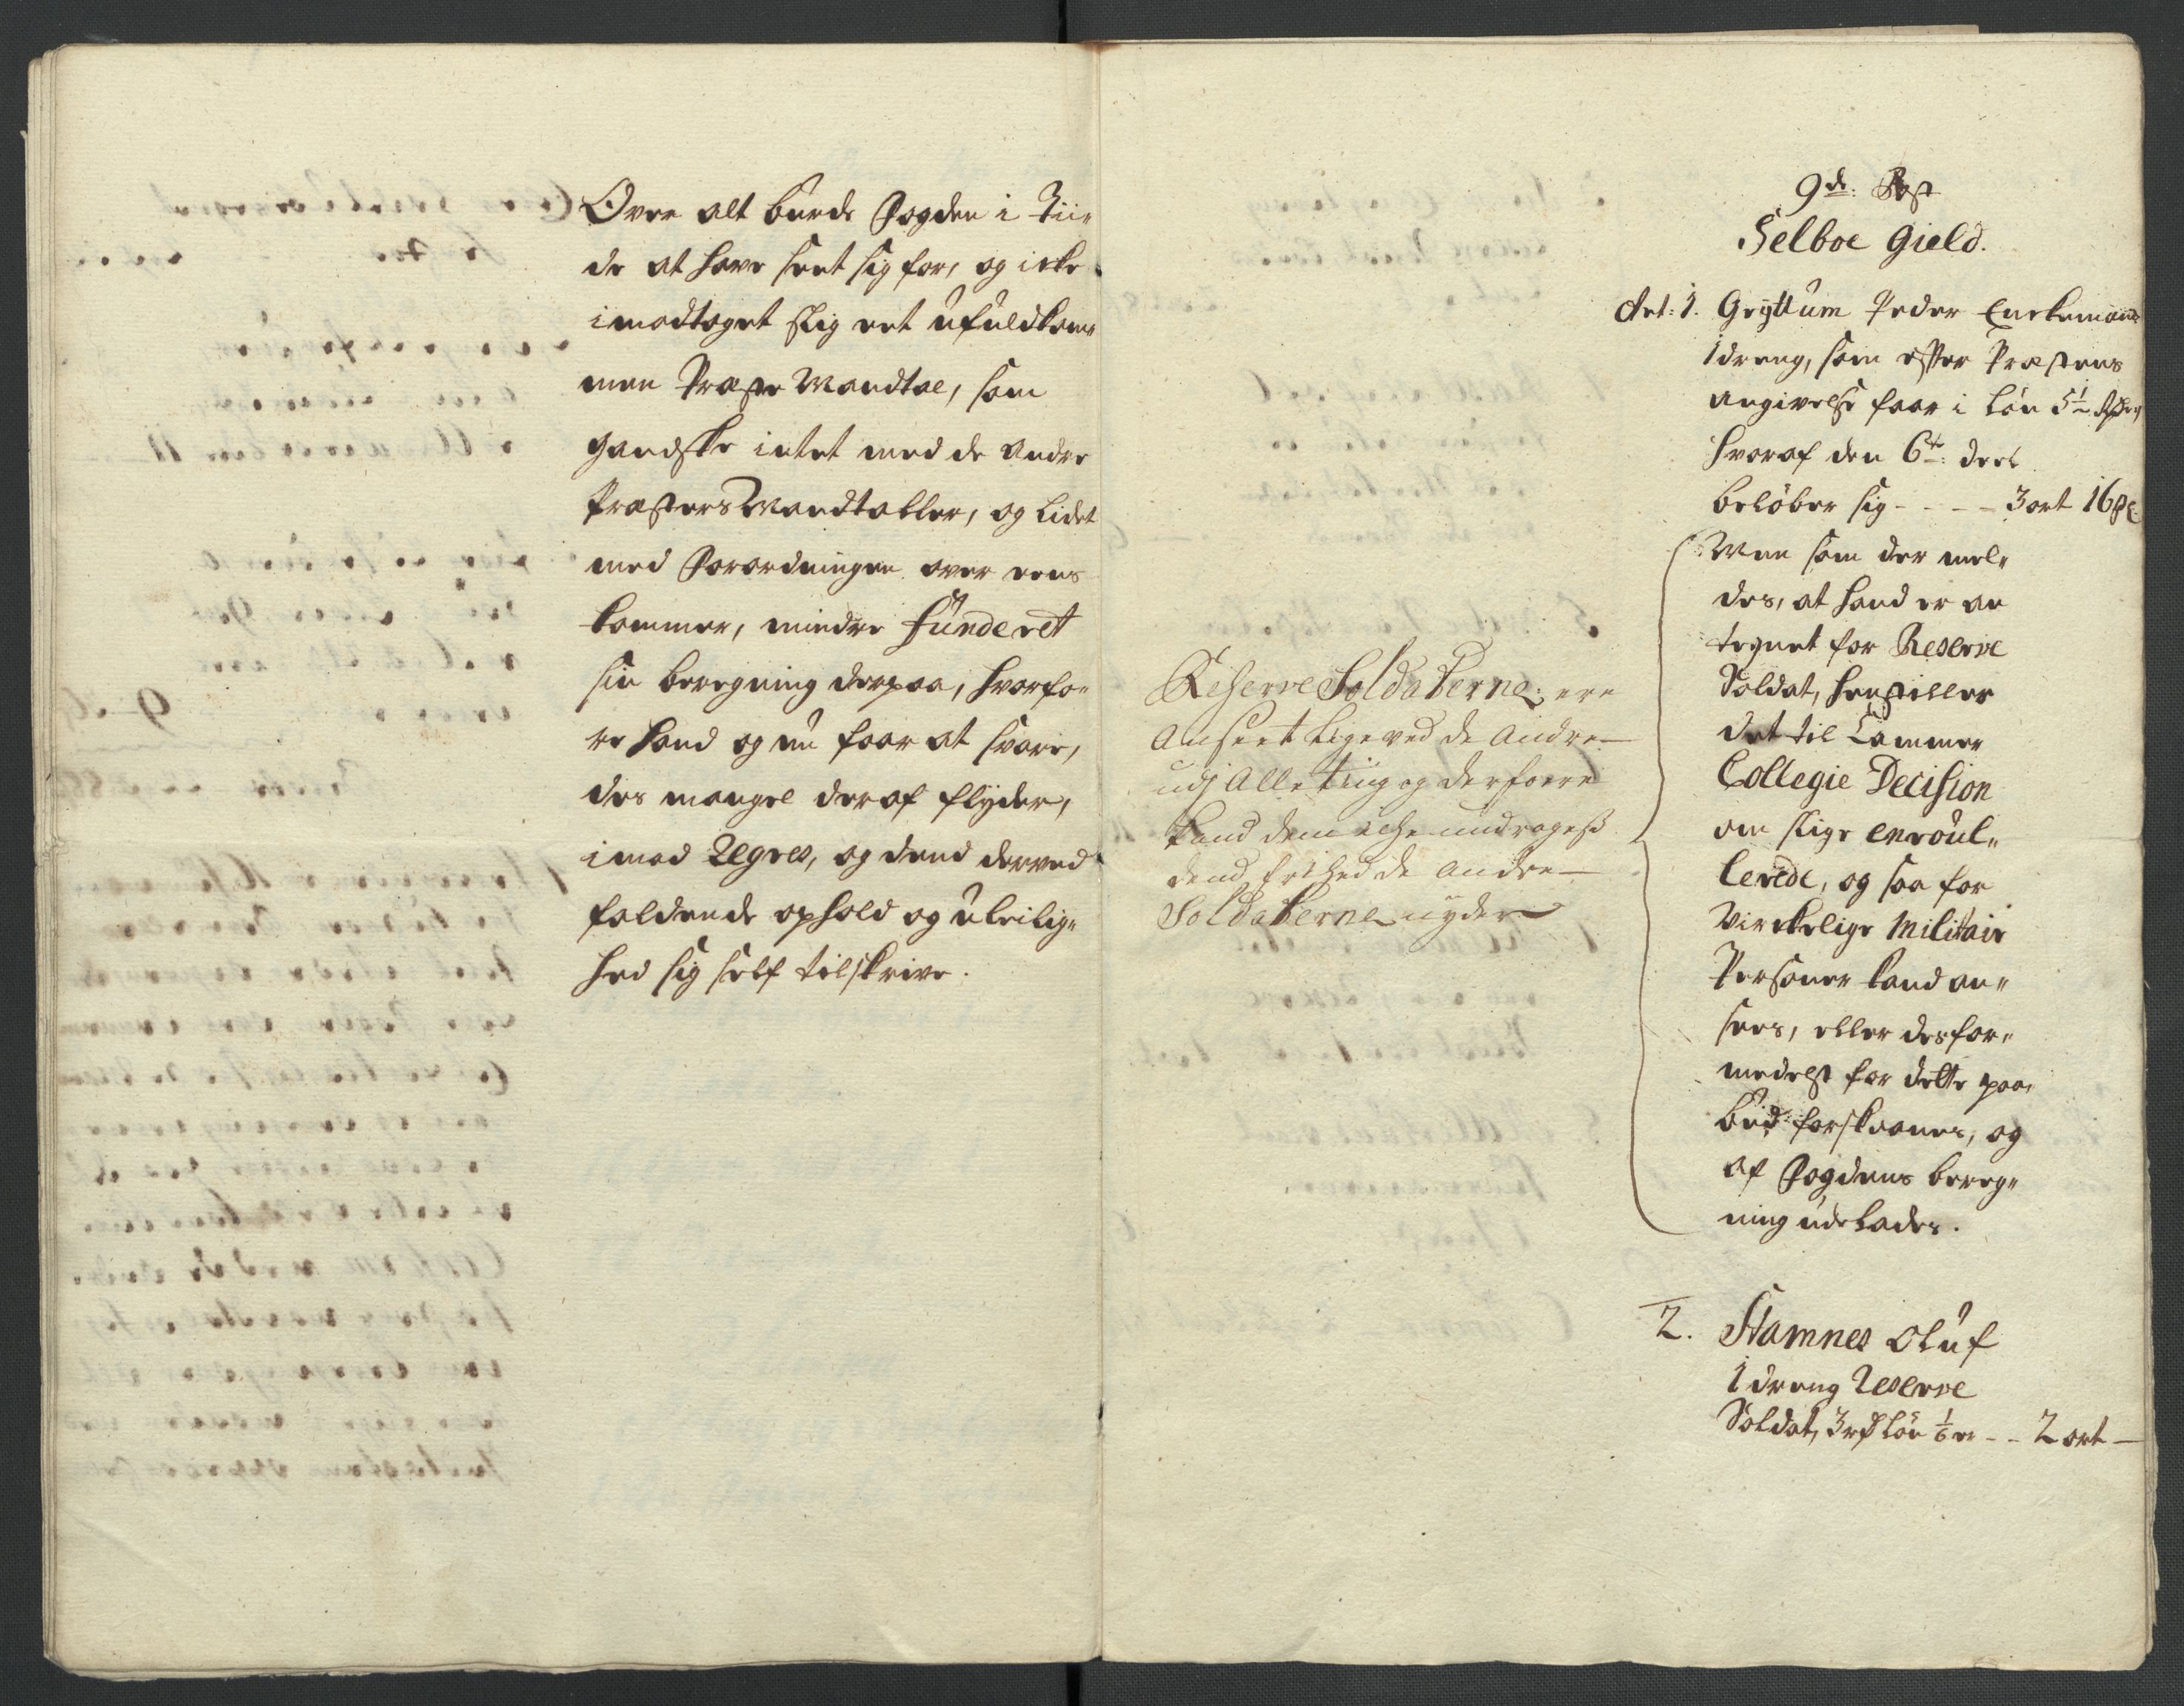 Over alt burde Fogden i Tii-
de at have seet sig for, og icke
imodtaget slig eet ufuldkom-
men Præste Mandtal, som
gandske intet med de andre
Præsters Mandtaller, og lidet
med Forordningen over eens
kommer, mindre funderet
sin beregning derpaa, hvorfo-
re hand og nu faar at svare,
des mangel deraf flyder,
imod Regres, og dend derved
faldende ophold og uleilig-
hed sig self tilskrive.
Reserve Soldaterne ere
Anseet lige ved de Andre
udj Alle ting og derfore
kand dem iche undrages
dend frihed de Andre
Soldaterne nyder
9de: Post
Selboe Gield.
Art: 1. Gryttum Peder Enckemand
1 dreng, som efter Præstens
angivelse faar i løn 5½ Rdr
hvoraf den 6te: deel
beløber sig - - - - 3 ort 16 s
Men som der mel-
des, at hand er an
tegnet for Reserve
Soldat, henstilles
det til Cammer
Collegie Decision
om slige enroul-
lerede, og saa for
virckelige Militair
Personer kand an-
sees, eller desfor-
medelst for dette paa-
bud forskaanes, og
af Fogdens bereg-
ning udelades.
2. Stamnes Oluf
1 dreng Reserve
Soldat, 3 rd løn 1/6 er - - 2 ort -